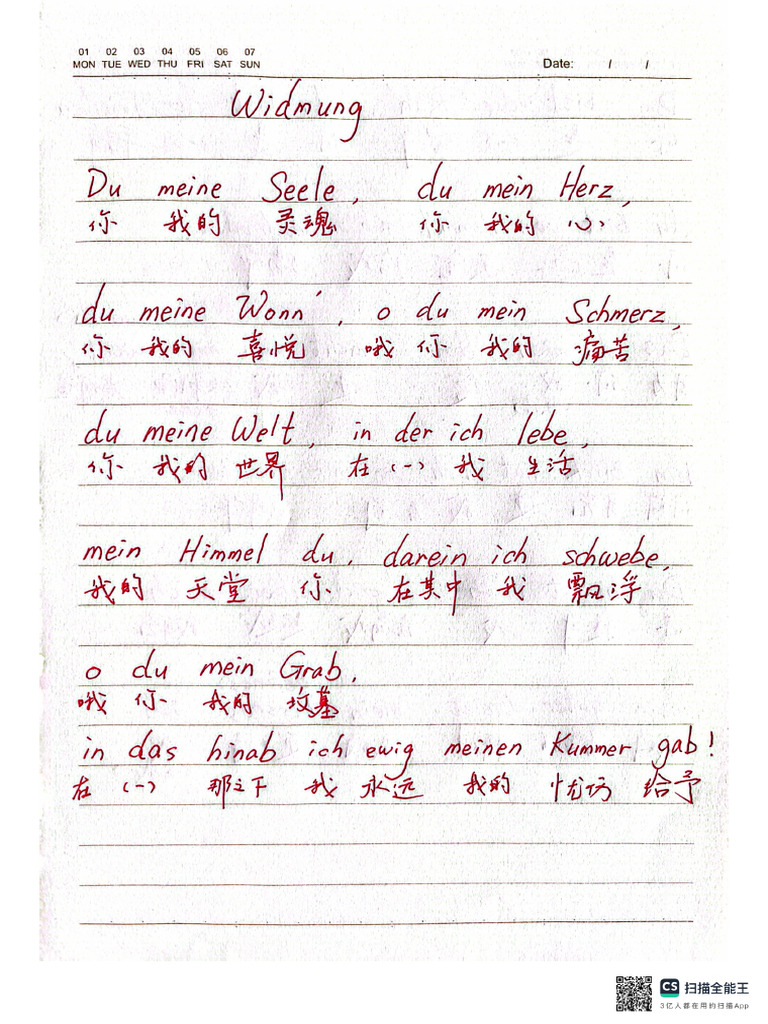 01 02 03 04 05 06 07
MON TUE WED THU FRI SAT SUN Date: / /
Widmung
Du meine Seele, du mein Herz,
你 我的 灵魂 你 我的 心
du meine Wonn', o du mein Schmerz,
你 我的 喜悦 哦 你 我的 痛苦
du meine Welt, in der ich lebe,
你 我的 世界 在 (一) 我 生活
mein Himmel du, darein ich schwebe,
我的 天堂 你 在其中 我 飘浮
o du mein Grab,
哦 你 我的 坟墓
in das hinab ich ewig meinen Kummer gab!
在 (一) 那之下 我 永远 我的 忧伤 给予
CS 扫描全能王
3亿人都在用的扫描App